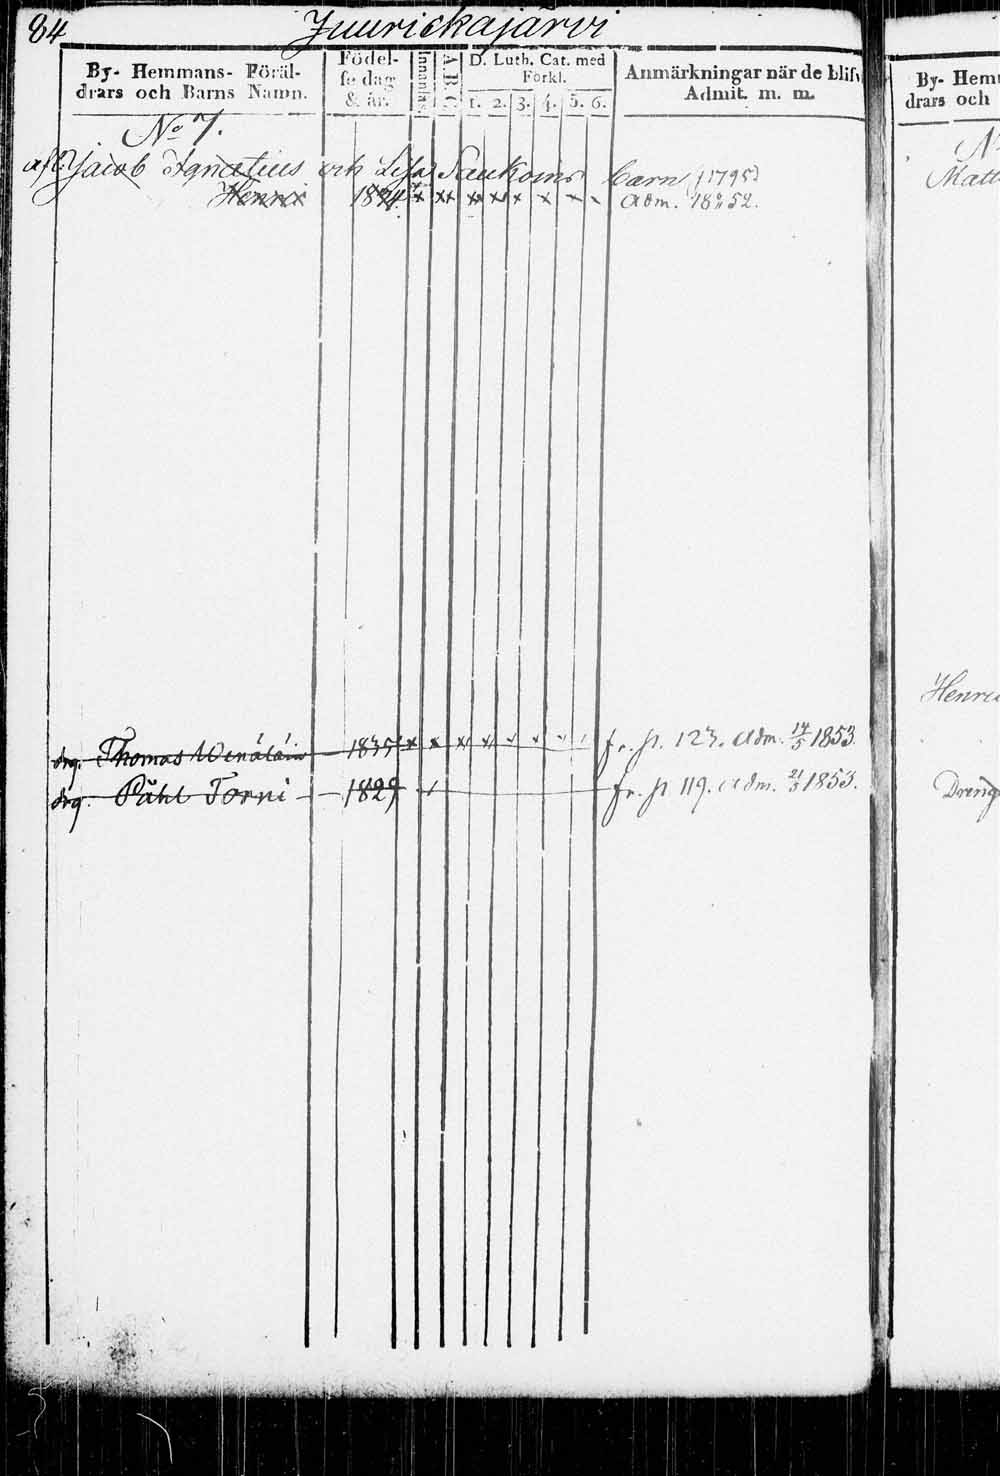 84 Juurickajärvi
By- Hemmans- Föräl-
drars och Barns Namn.
Födel-
se dag
& år.
Innanläs.
A.B.C.
D. Luth. Cat. med
Förkl.
1. 2. 3. 4. 5. 6.
Anmärkningar när de blifv
Admit. m. m.
No 7.
afl. Jacob Ignatius och Lisa Saukoins barn (1795)
Henric 1834 x x x x x x x x Adm. 18 52.
drg. Thomas Wenäläin 1835 x x x x fr. p. 123. Adm. 14/5 1853.
drg. Påhl Torni 1829 fr. p. 119. Adm. 21/3 1853.
By- Hem
drars och
N
Matt
Henric
Dreng